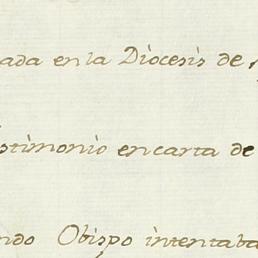 ada en la Diocesis de
stimonio en carta de
ndo Obispo intentaba